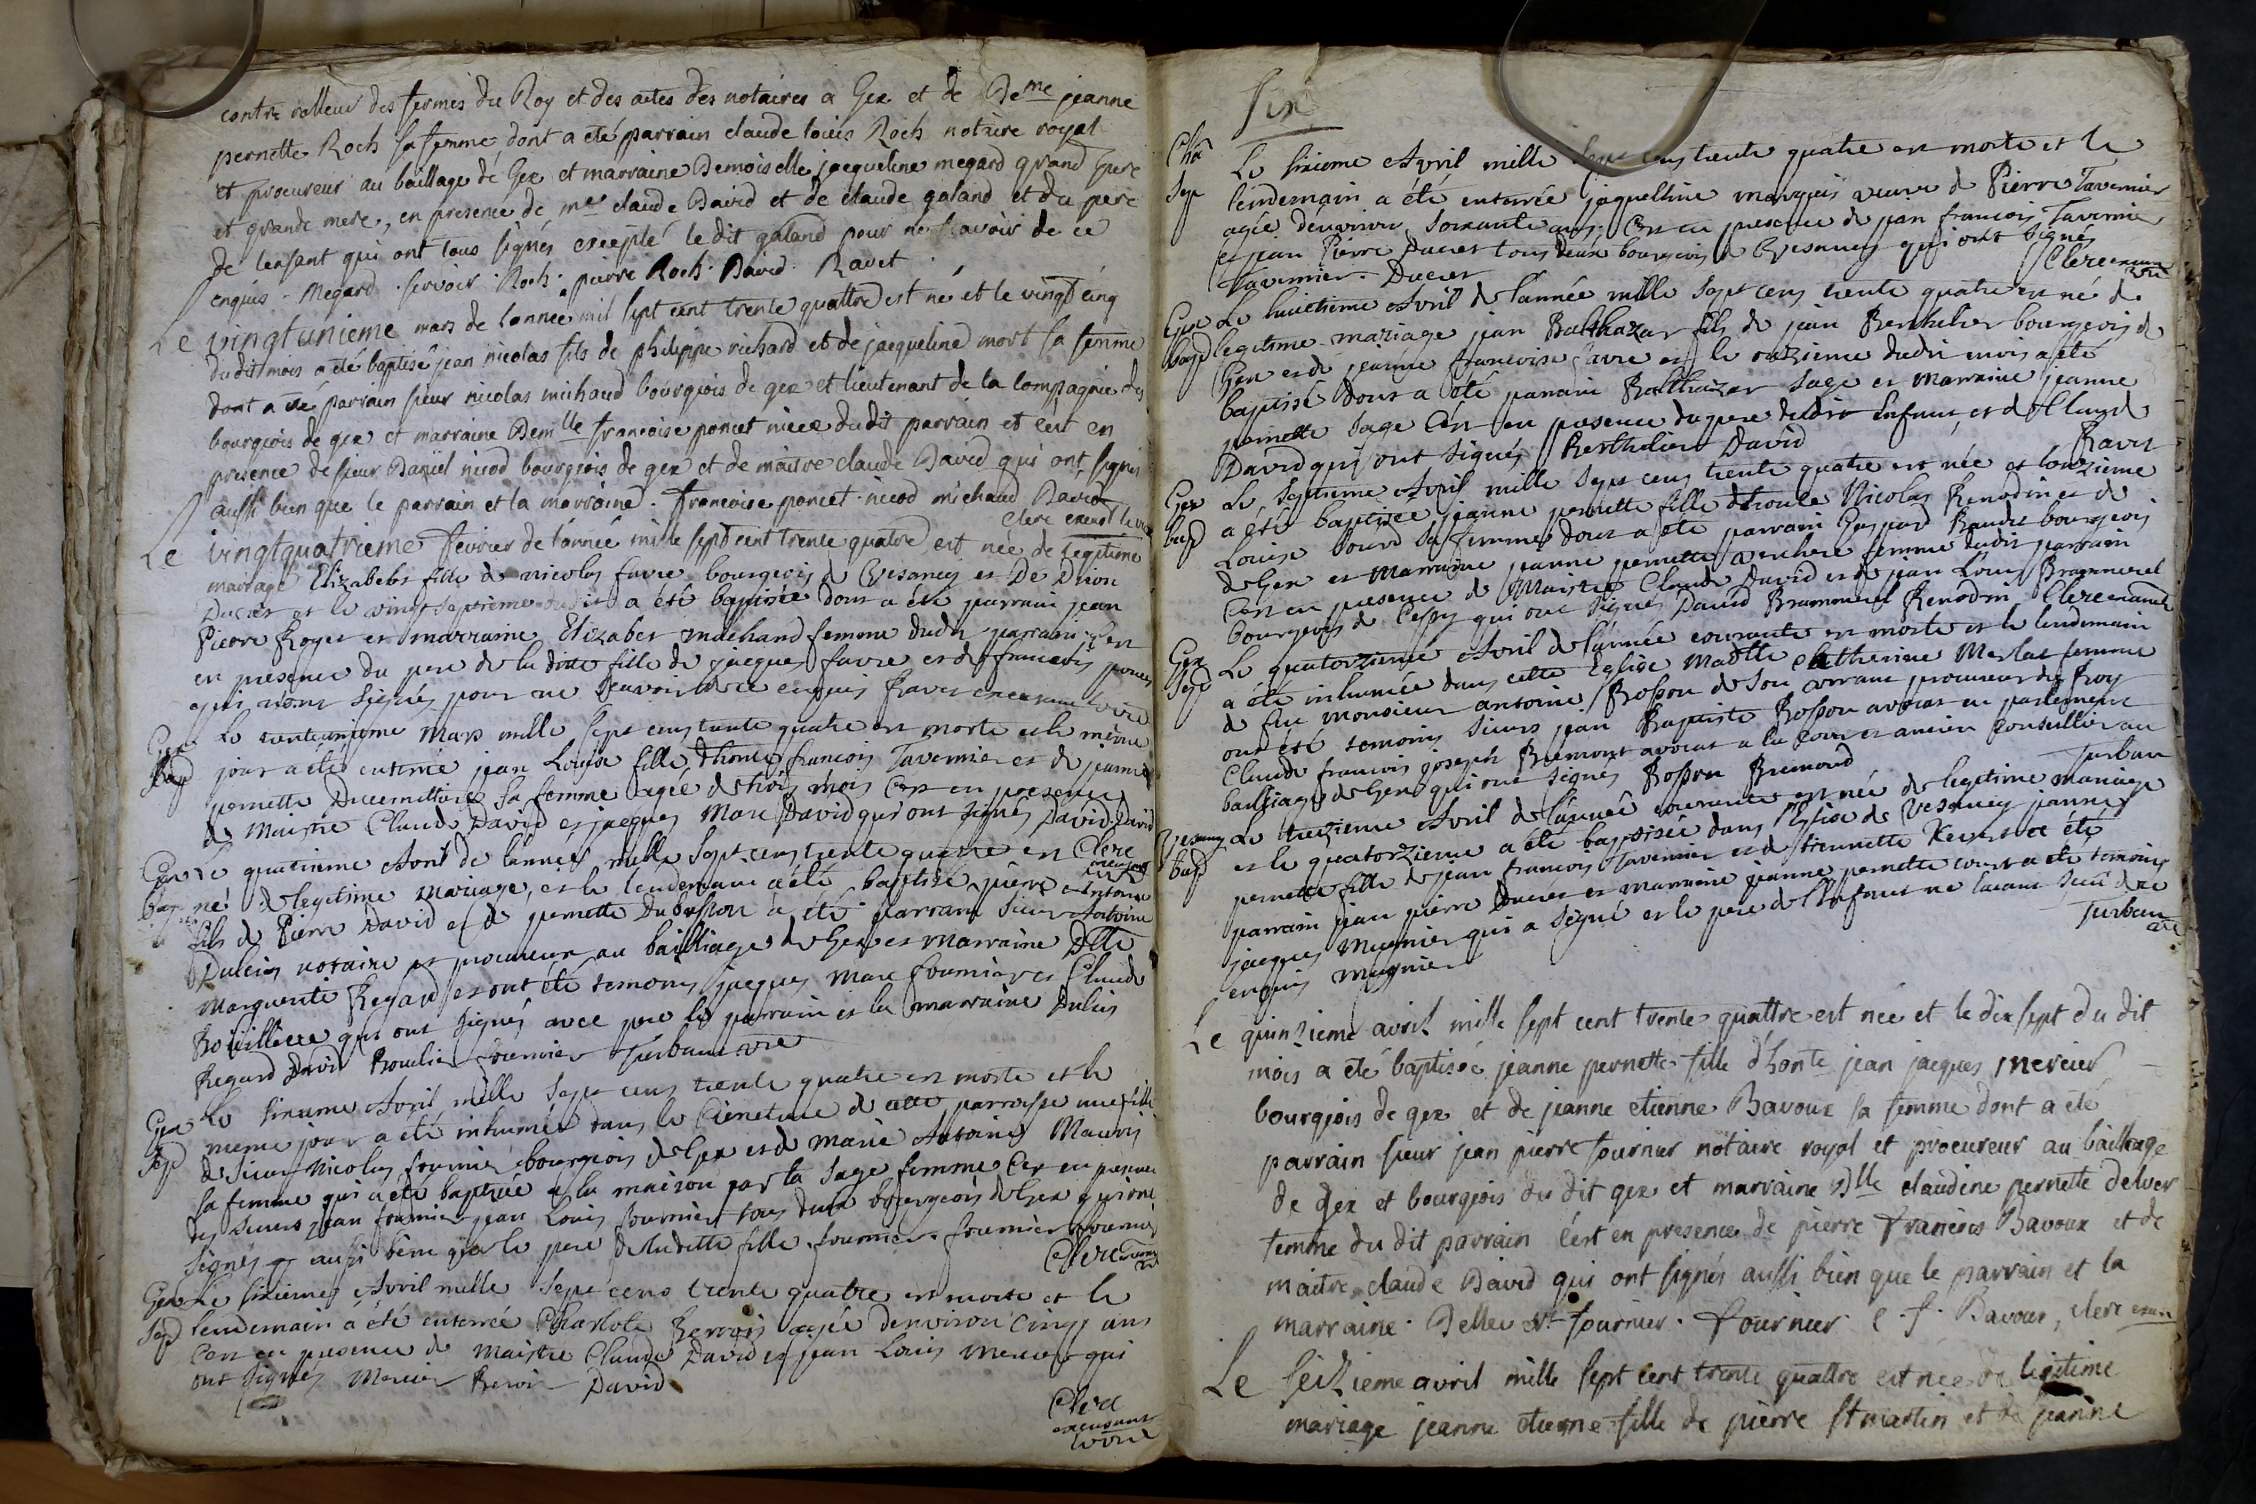 contre rolleur des fermes du Roy et des actes des notaires a Gex et de Deme jeanne
pernette Roch sa femme dont a eté parrain claude louis Roch notaire royal
et procureur au baillage de Gex et marraine Demoiselle jacqueline megard grand pere
et grande mere, en presence de me claude David et de claude galand et du pere
de lenfant qui ont tous signés exceplé le dit galand pour ne scavoir de ce
enquis - Megard . servoir . Roch . pierre Roch . David . Ravet
Le vingtunieme mars de lannee mil sept cent trente quattre est né et le vingt cinq
du dit mois a eté baptisé jean nicolas fils de philippe richard et de jacqueline mort sa femme
dont a eté parrain sieur nicolas michaud bourgeois de gex et lieutenant de la compagnie des
bourgeois de gex et marraine Demlle francoise poncet niece du dit parrain et c'est en
presence de sieur Daniel nicod bourgeois de gex et de maitre claude David qui ont signés
aussi bien que le parrain et la marraine . francoise poncet . nicod michaud David
clerc
Le vingtquatrieme fevrier de lannée mille sept cent trente quatre est née de legitime
mariage Elizabeht fille de nicolas favre bourgeois de Vesancy et De
Ducret et le vingt septieme dudit a été baptisée dont a été parrain jean
Pierre Roget et marraine Elizabet machand femme dudit parrain c'est
en presence du pere de la ditte fille de jacques favre et de francois
qui n'ont signés pour ne scavoir de ce enquis Ravet
Gex Le trenteunieme Mars mille sept cens trente quatre est morte et le même
Sep jour a été enterrée jean Louise fille d'honte francois Tavernier et de jeanne
pernette sa femme agée de trois mois C'est en presence
de Maistre Claude David et jacques Marc David qui ont signés David David
Clerc
Gex Le quatrieme Avril de l'année mille sept cens trente quatre est
bap né de legitime mariage, et le lendemain a été baptisé pierre Antoine
fils de Pierre David et de pernette Dubosson a été parrain Sieur Antoine
Dulcis notaire et procureur au bailliage de Gex et Marraine Dlle
Marguerite Regard et ont été temoins jacques Marc fournier et Claude
qui ont signés avec pere le parrain et la marraine Dulcis
Regard David fournier Turban
Gex Le sixieme Avril mille sept cens trente quatre est morte et le
Sep meme jour a été inhumée dans le Cimetiere de cette parroisse une fille
de Sieur Nicolas fournier bourgeois de Gex et de Marie Antoine
sa femme qui a été baptisée a la maison par la sage femme C'est en presence
des Sieurs jean fournier jean Louis fournier tous deux bourgeois de Gex qui ont
signés aussi bien que le pere de ladite fille . fournier . fournier fournier
Clerc
Gex Le sixieme Avril mille sept cens trente quatre est morte et le
Sep lendemain a été enterrée Charlote agée denviron Cinq ans
C'est en presence de Maistre Claude David et jean Louis mercier qui
ont signés Mercier David
Clerc
Six
Le sixieme Avril mille sept cens trente quatre est morte et le
Sep lendemain a été enterrée jaquelline marquis veuve de Pierre Tavernier
agée denviron soixante ans C'est en presence de jean francois Tavernier
et jean Pierre Ducret tous deux bourgeois de Vesancy qui ont signés
Tavernier . Ducret Clerc
Gex Le huitieme Avril de l'année mille sept cens trente quatre est né de
bap legitime mariage jean Balthazar fils de jean Berthelier bourgeois de
Gex et de jeanne francoise favre et le onzieme dudit mois a été
baptisé dont a été parrain Balthazar Sage et Marraine jeanne
pernette Sage C'est en presence du pere dudit Enfant et de Claude
David qui ont signés Berthelier David Ravet
Gex Le septieme Avril mille sept cens trente quatre est née et l'onzieme
bap a été baptisée jeanne pernette fille d'honte Nicolas Renodin et de
Louise sa femme dont a été parrain Gaspard Baudet bourgeois
de Gex et Marraine jeanne pernette femme dudit parrain
C'est en presence de Maistre Claude David et de jean Louis Brammerel
bourgeois de Cessy qui ont signés David Brammerel Renodin Clerc
Gex Le quatorzieme Avril de l'année courante est morte et le lendemain
Sep a été inhumée dans cette Eglise Madlle Catherine Merlat femme
de feu Monsieur antoine Rosson de son vivant procureur du Roy
ont été temoins sieurs jean Baptiste Rosson avocat en parlement
Claude francois joseph Bremont avocat a la cour et ancien conseiller au
bailliage de Gex qui ont signés Rosson Bremond Turban
Vesancy Le treizieme Avril de l'année courante est née de legitime mariage
bap et le quatorzieme a été baptisée dans l'Eglise de Vesancy jeanne
pernette fille de jean francois Tavernier et de a été
parrain jean pierre Ducret et marraine jeanne pernette a été temoins
jacques Mugnier qui a signé et le pere de l'Enfant ne l'ayant sceu de ce
enquis Mugnier Turban
Le quinzieme avril mille sept cent trente quattre est née et le dix sept du dit
mois a eté baptisée jeanne pernette fille d'honte jean jacques mercier
bourgeois de gex et de jeanne etienne Bavoux sa femme dont a eté
parrain sieur jean pierre fournier notaire royal et procureur au bailliage
de gex et bourgeois du dit gex et marraine Dlle claudine pernette deluer
femme du dit parrain c'est en presence de pierre francois Bavoux et de
maitre claude David qui ont signés aussi bien que le parrain et la
marraine . fournier . fournier . f . Bavoux, clerc
Le seizieme avril mille sept cent trente quattre est née de legitime
mariage jeanne etienne fille de pierre st martin et de jeanne